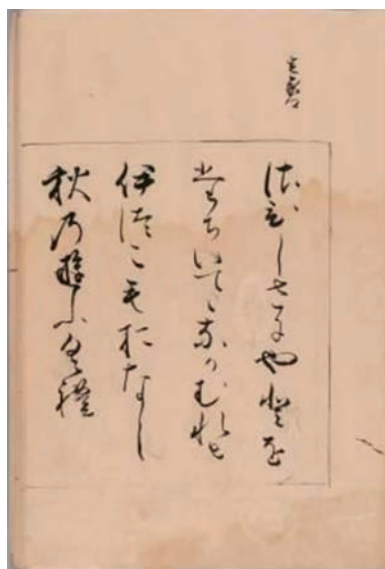 さひしさにやとを
たちいてゝなかむれは
いつこもおなし
秋のゆふくれ